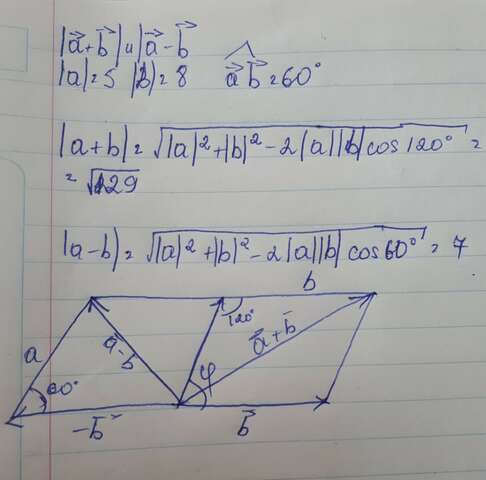 |a⃗+b⃗| и |a⃗-b⃗|
|a|=5 |b|=8 a⃗ b⃗ = 60°
|a+b| = √|a|²+|b|²-2|a||b|cos 120° =
= √129
|a-b| = √|a|²+|b|²-2|a||b| cos 60° = 7
b
120°
a
a⃗-b
a⃗+b
60°
φ
-b⃗
b⃗